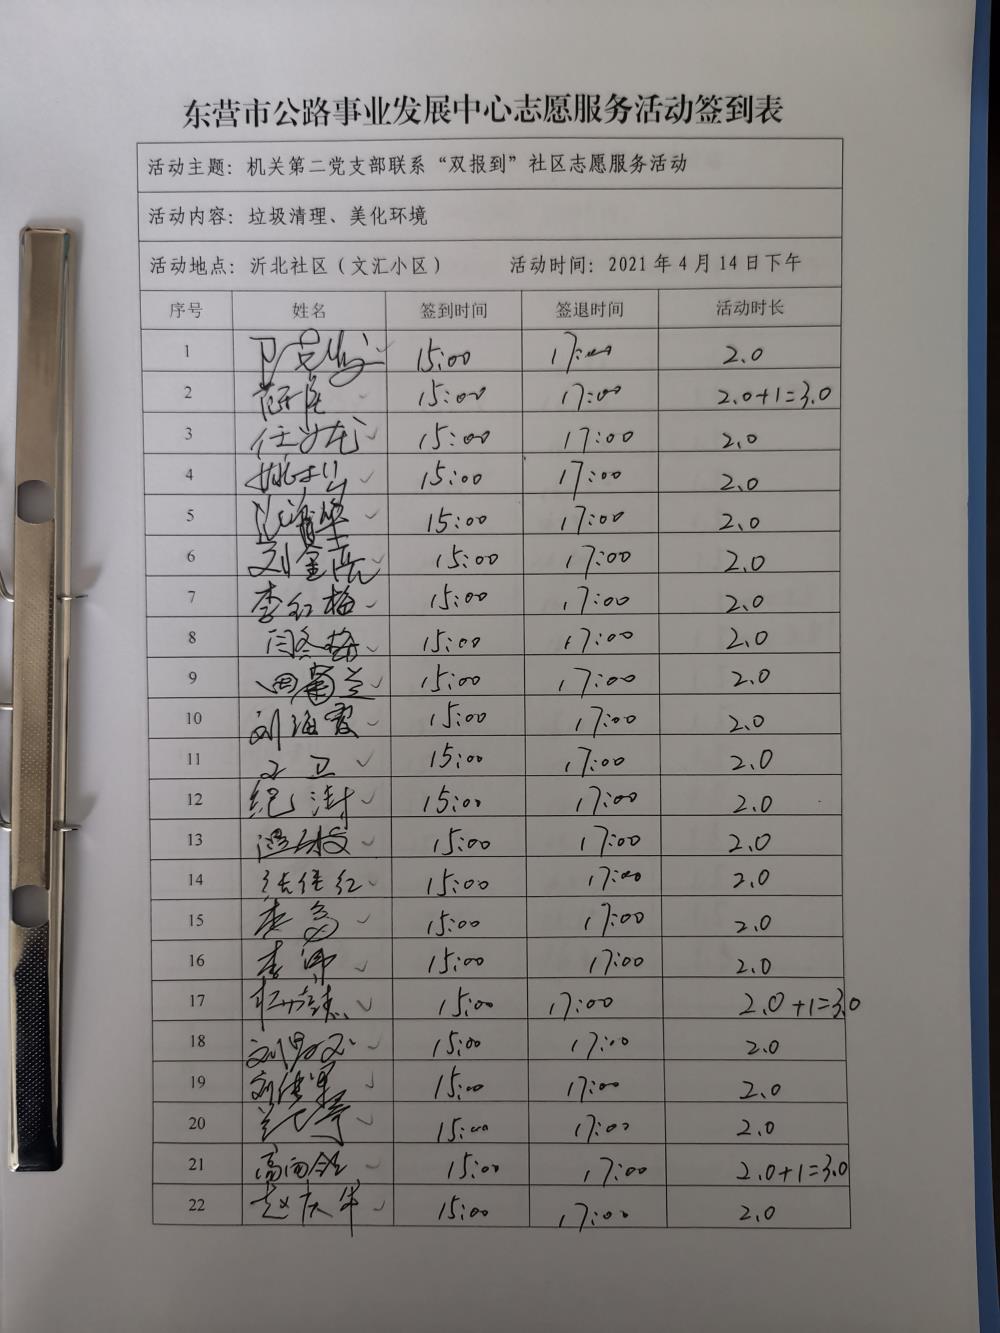 东营市公路事业发展中心志愿服务活动签到表
活动主题：机关第二党支部联系“双报到”社区志愿服务活动
活动内容：垃圾清理、美化环境
活动地点：沂北社区（文汇小区） 活动时间：2021年4月14日下午
序号 姓名 签到时间 签退时间 活动时长
1 15:00 17:00 2.0
2 15:00 17:00 2.0+1=3.0
3 15:00 17:00 2.0
4 15:00 17:00 2.0
5 15:00 17:00 2.0
6 刘金 15:00 17:00 2.0
7 李红梅 15:00 17:00 2.0
8 闫冬梅 15:00 17:00 2.0
9 周菊兰 15:00 17:00 2.0
10 刘海霞 15:00 17:00 2.0
11 卫 15:00 17:00 2.0
12 纪 15:00 17:00 2.0
13 15:00 17:00 2.0
14 张佳红 15:00 17:00 2.0
15 15:00 17:00 2.0
16 李 15:00 17:00 2.0
17 15:00 17:00 2.0+1=3.0
18 刘 15:00 17:00 2.0
19 刘 15:00 17:00 2.0
20 15:00 17:00 2.0
21 高 15:00 17:00 2.0+1=3.0
22 赵庆华 15:00 17:00 2.0